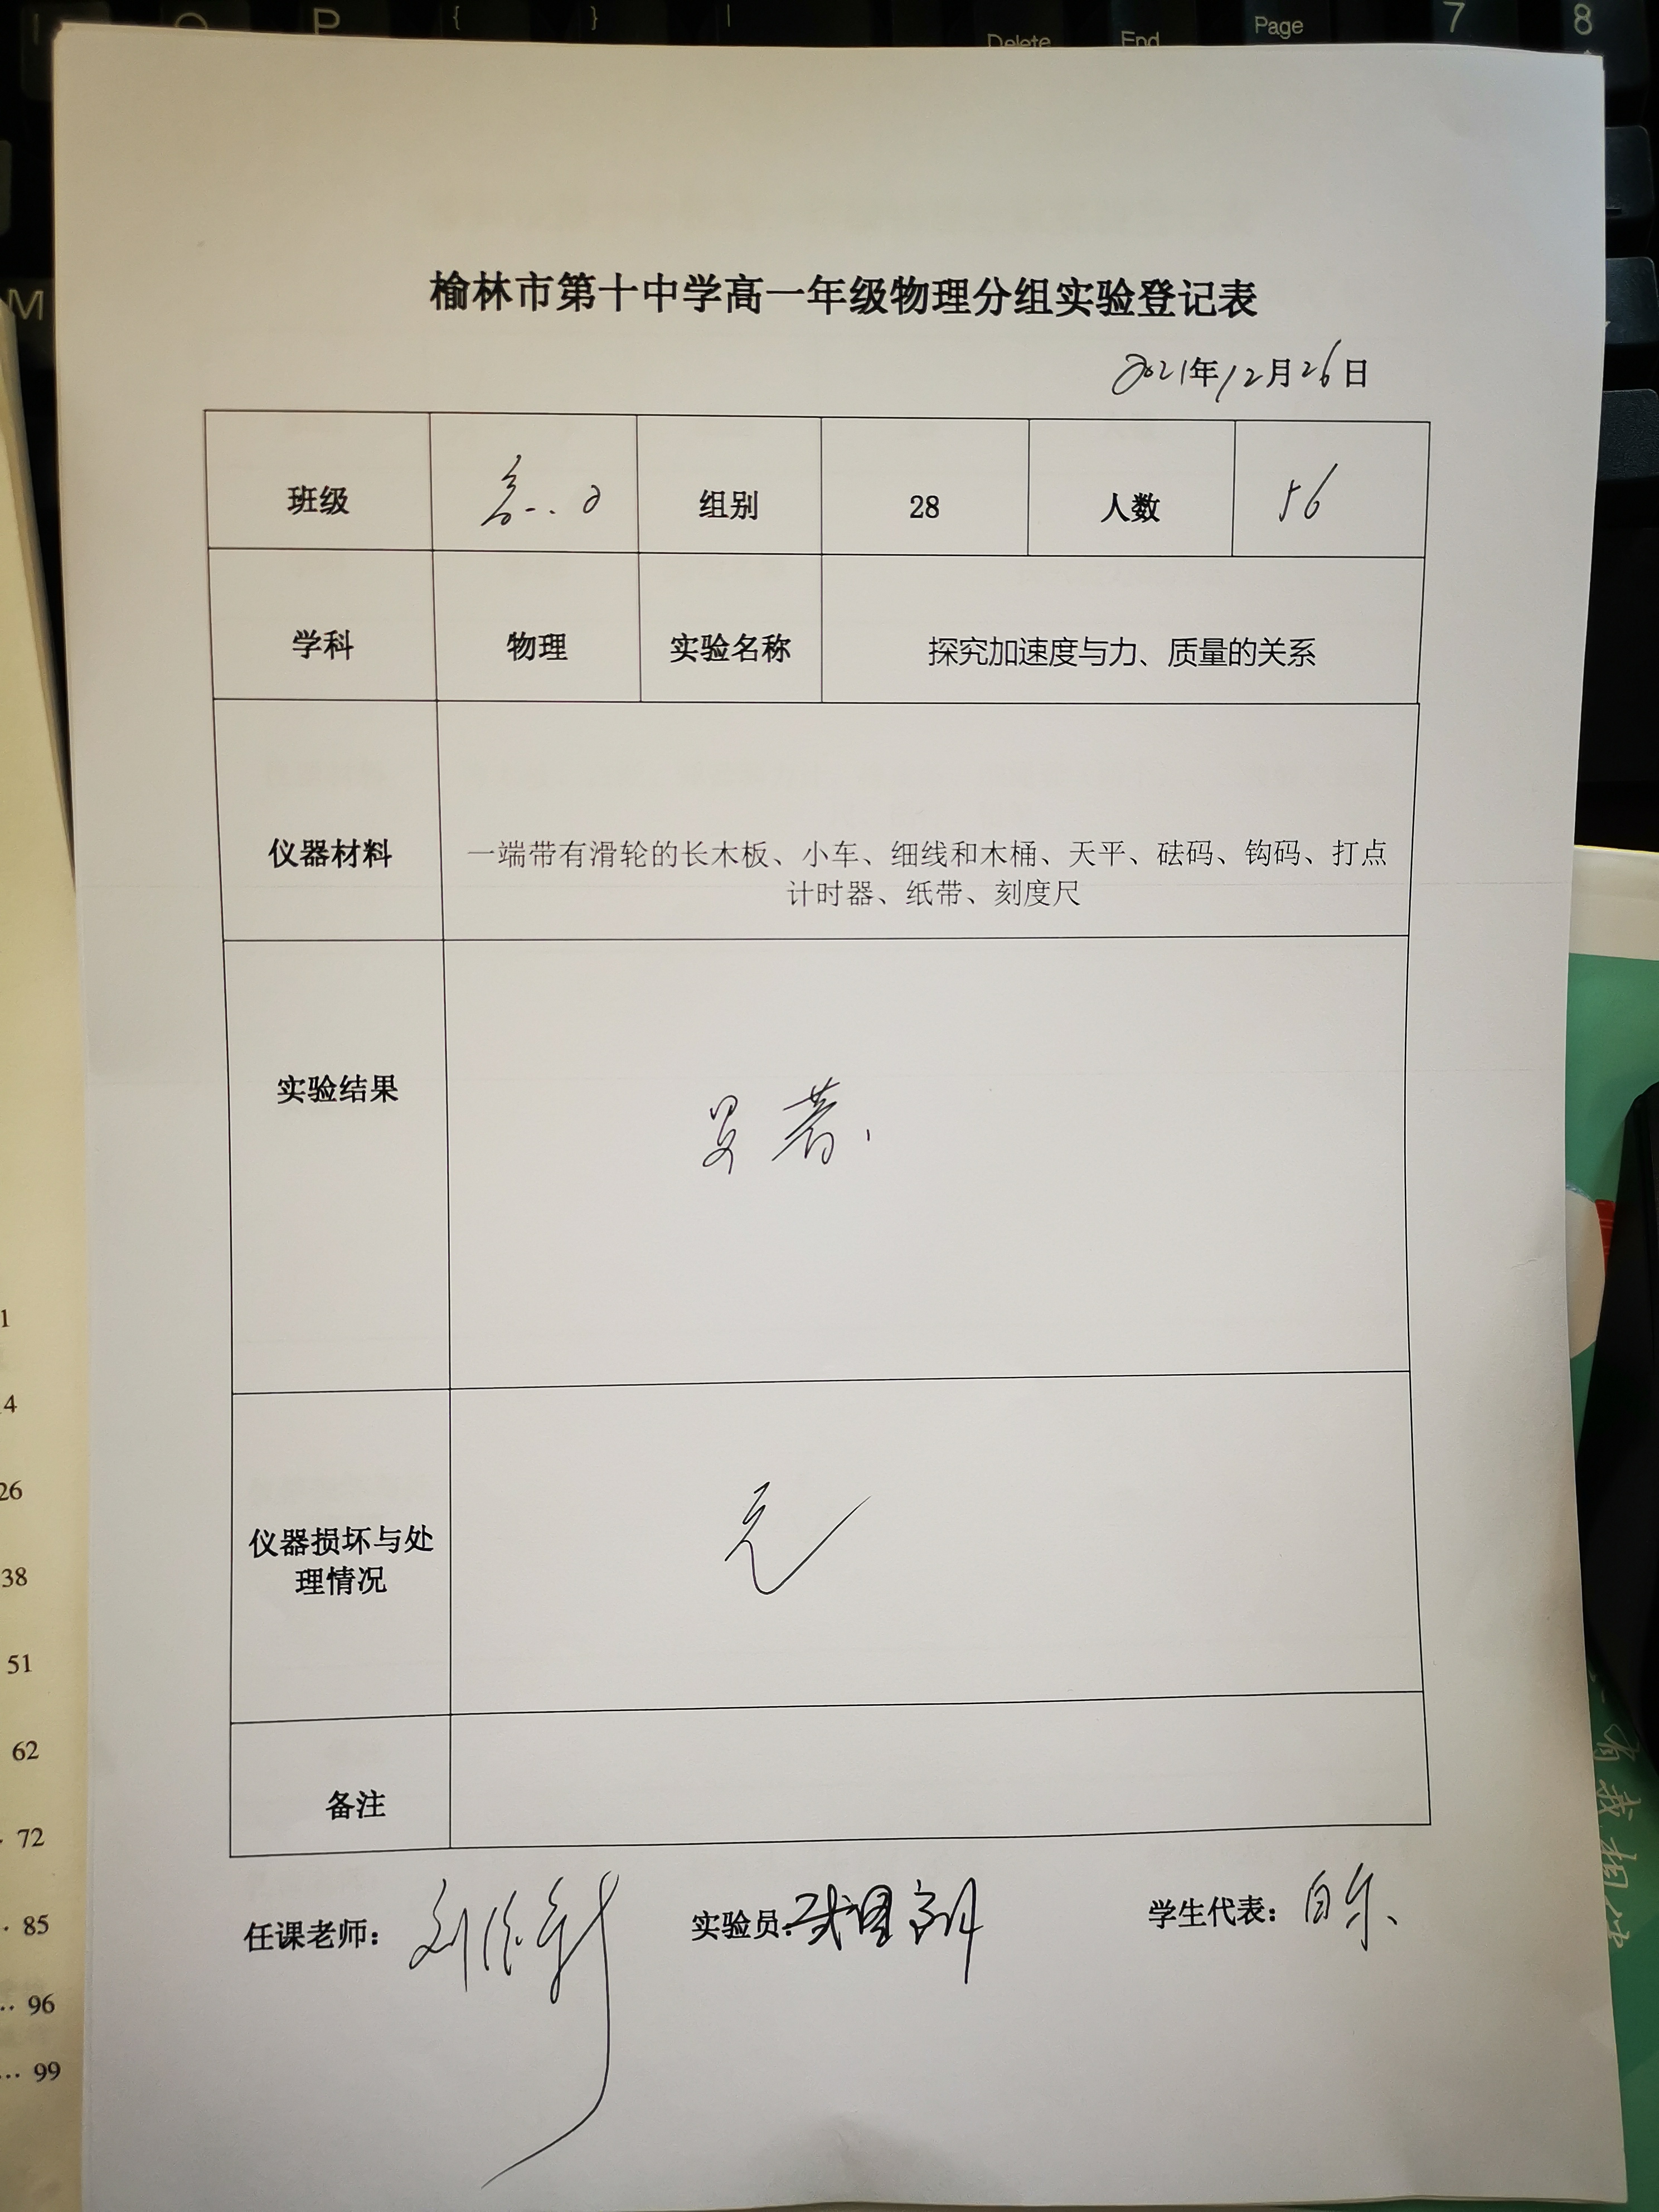 O P { } |
Delete End Page 7 8
M
榆林市第十中学高一年级物理分组实验登记表
2021年12月26日
班级 组别 28 人数 56
学科 物理 实验名称 探究加速度与力、质量的关系
仪器材料 一端带有滑轮的长木板、小车、细线和木桶、天平、砝码、钩码、打点
计时器、纸带、刻度尺
实验结果 显著.
仪器损坏与处
理情况 无
备注
任课老师: 实验员: 学生代表:
1
14
26
38
51
62
72
85
96
99